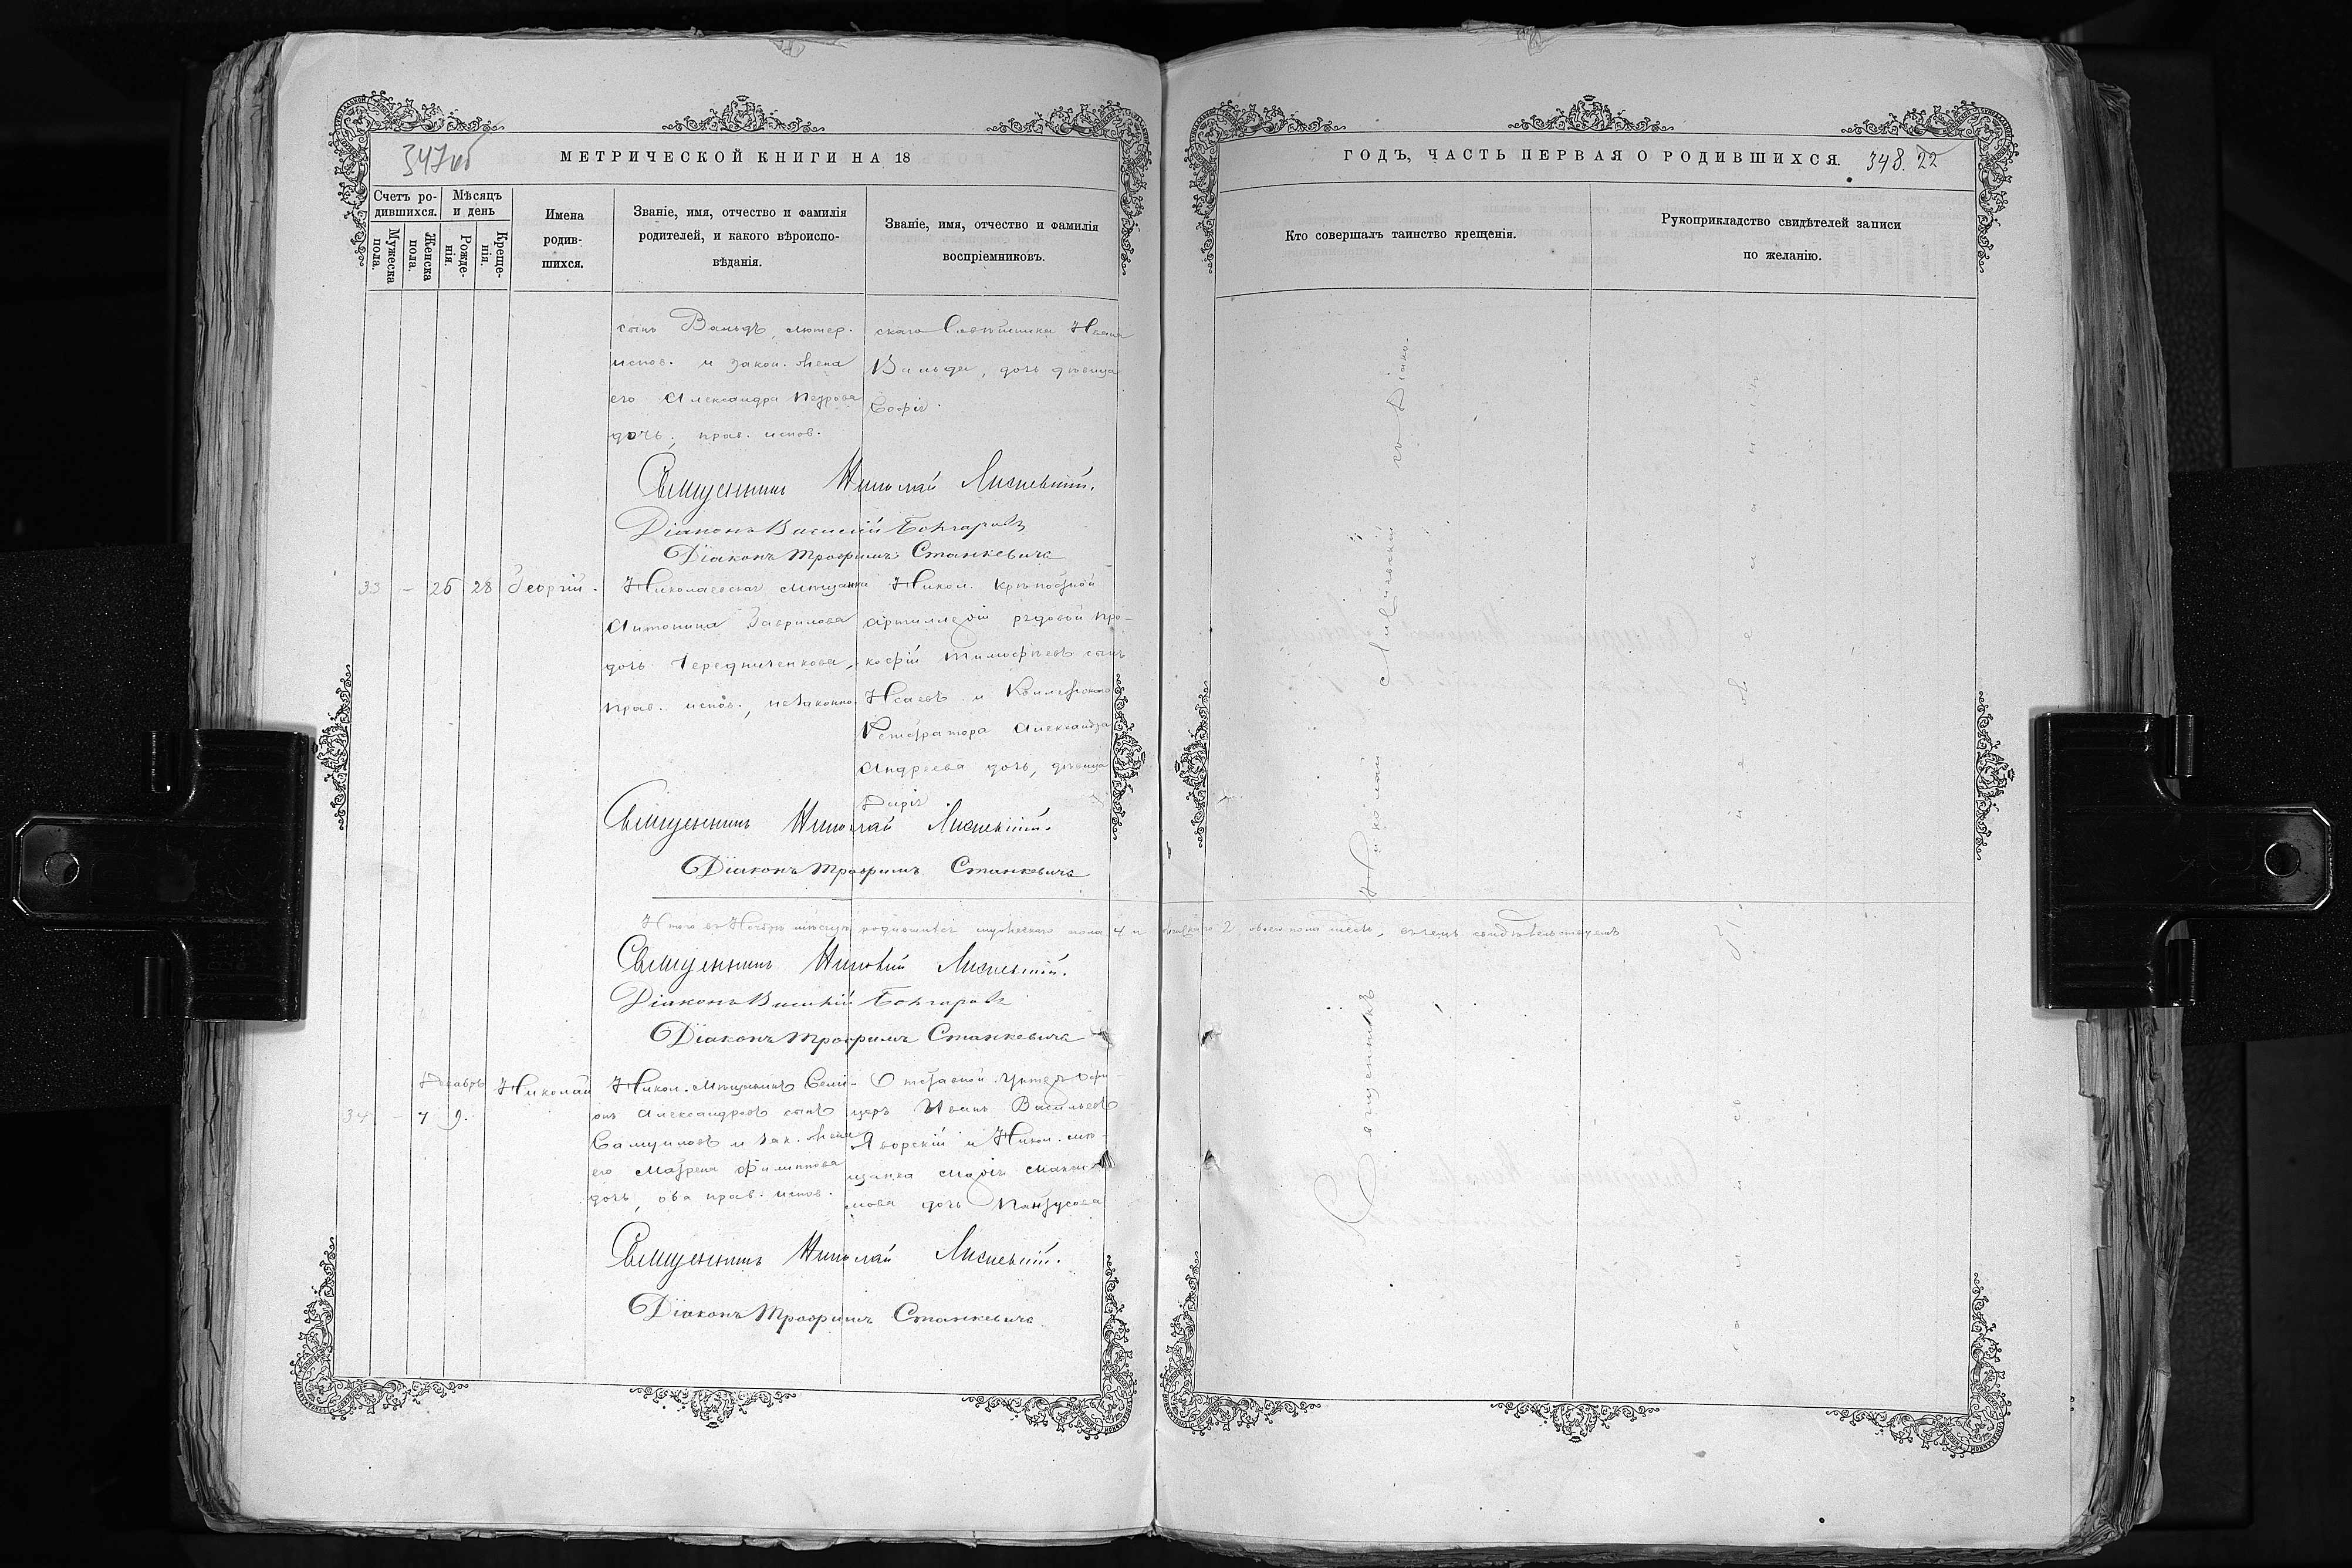 347об
МЕТРИЧЕСКОЙ КНИГИ НА 18
Счетъ ро-
дившихся.
Мѣсяцъ
и день
Мужеска
пола.
Женска
пола.
Рожде-
нія.
Креще-
нія.
Имена
родив-
шихся.
Званіе, имя, отчество и фамилія
родителей, и какого вѣроиспо-
вѣданія.
Званіе, имя, отчество и фамилія
воспріемниковъ.
сынъ Вальдъ, лютер.
испов. и закон. жена
его Александра Петрова
дочь, прав. испов.
скаго Совѣтника Ивана
Вальда, дочь дѣвица
Софія.
Священникъ Николай
Діаконъ Василій
Діаконъ Трофимъ Станкевичъ
33 - 26 28 Георгій.
Николаевская мѣщанка
Антонина Гаврилова
дочь Чередниченкова,
прав. испов., незаконно
Никол. крѣпостной
артиллеріи рядовой Про-
кофій Тимофѣевъ сынъ
Исаевъ и Коллежскаго
Регистратора Александра
Андреева дочь, дѣвица
Дарія
Священникъ Николай
Діаконъ Трофимъ Станкевичъ
Итого въ Ноябрѣ мѣсяцѣ родившихся мужескаго пола 4 и женскаго 2 обоего пола шесть, въ чемъ свидѣтельствуемъ
Священникъ Николай
Діаконъ Василій
Діаконъ Трофимъ Станкевичъ
Декабрь
34 - 7 9. Николай
Никол. мѣщанинъ Семі-
онъ Александровъ сынъ
Самуиловъ и зак. жена
его Матрена Филиппова
дочь, оба прав. испов.
Отставной Унтеръ Офи-
церъ Иванъ Васильевъ
Яворскій и Никол. мѣ-
щанка Марія Макси-
мова дочь
Священникъ Николай
Діаконъ Трофимъ Станкевичъ
ГОДЪ, ЧАСТЬ ПЕРВАЯ О РОДИВШИХСЯ.
348. 22
Кто совершалъ таинство крещенія.
Рукоприкладство свидѣтелей записи
по желанію.
Священникъ Николай съ Діако-